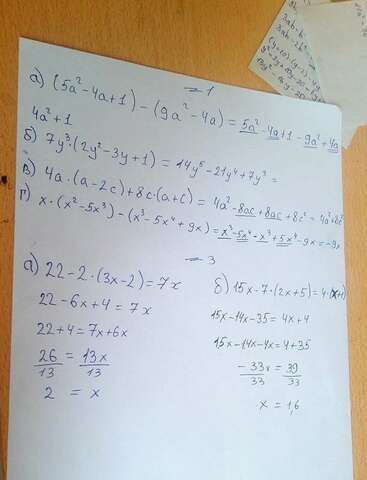 = 1
а) (5a² - 4a + 1) - (9a² - 4a) = 5a² - 4a + 1 - 9a² + 4a
4a² + 1
б) 7y³ · (2y² - 3y + 1) = 14y⁵ - 21y⁴ + 7y³ =
в) 4a · (a - 2c) + 8c · (a + c) = 4a² - 8ac + 8ac + 8c² = 4a² + 8c²
г) x · (x² - 5x³) - (x³ - 5x⁴ + 9x) = x³ - 5x⁴ - x³ + 5x⁴ - 9x = -9x
= 3
а) 22 - 2 · (3x - 2) = 7x
22 - 6x + 4 = 7x
22 + 4 = 7x + 6x
26/13 = 13x/13
2 = x
б) 15x - 7 · (2x + 5) = 4 · (x + 1)
15x - 14x - 35 = 4x + 4
15x - 14x - 4x = 4 + 35
- 33x/33 = 39/33
x = 1,6